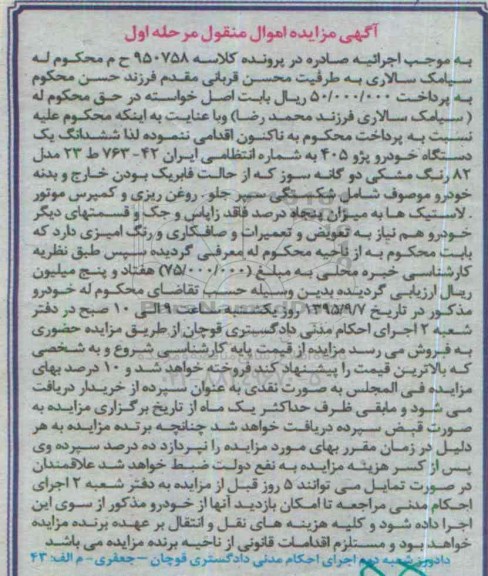 آگهی مزایده اموال منقول مرحله اول
به موجب اجرائیه صادره در پرونده کلاسه ۹۵۰۷۵۸ ح م محکوم له
سیامک سالاری به طرفیت محسن قربانی مقدم فرزند حسن محکوم
به پرداخت ۵۰/۰۰۰/۰۰۰ ریال بابت اصل خواسته در حق محکوم له
( سیامک سالاری فرزند محمد رضا) وبا عنایت به اینکه محکوم علیه
نسبت به پرداخت محکوم به تاکنون اقدامی ننموده لذا ششدانگ یک
دستگاه خودرو پژو ۴۰۵ به شماره انتظامی ایران ۴۲- ۷۶۳ ط ۲۳ مدل
۸۲ رنگ مشکی دو گانه سوز که از حالت فابریک بودن خارج و بدنه
خودرو موصوف شامل شکستگی سپر جلو . روغن ریزی و کمپرس موتور
. لاستیک ها به میزان پنجاه درصد فاقد زاپاس و جک و قسمتهای دیگر
خودرو هم نیاز به تعویض و تعمیرات و صافکاری و رنگ امیزی دارد که
بابت محکوم به از ناحیه محکوم له معرفی گردیده سپس طبق نظریه
کارشناسی خبره محلی به مبلغ (۷۵/۰۰۰/۰۰۰) هفتاد و پنج میلیون
ریال ارزیابی گردیده بدین وسیله حسب تقاضای محکوم له خودرو
مذکور در تاریخ ۱۳۹۵/۹/۷ روز یکشنبه ساعت ۹ الی ۱۰ صبح در دفتر
شعبه ۲ اجرای احکام مدنی دادگستری قوچان از طریق مزایده حضوری
به فروش می رسد مزایده از قیمت پایه کارشناسی شروع و به شخصی
که بالاترین قیمت را پیشنهاد کند فروخته خواهد شد و ۱۰ درصد بهای
مزایده فی المجلس به صورت نقدی به عنوان سپرده از خریدار دریافت
می شود و مابقی ظرف حداکثر یک ماه از تاریخ برگزاری مزایده به
صورت قبض سپرده دریافت خواهد شد چنانچه برنده مزایده به هر
دلیل در زمان مقرر بهای مورد مزایده را نپردازد ده درصد سپرده وی
پس از کسر هزینه مزایده به نفع دولت ضبط خواهد شد علاقمندان
در صورت تمایل می توانند ۵ روز قبل از مزایده به دفتر شعبه ۲ اجرای
احکام مدنی مراجعه تا امکان بازدید آنها از خودرو مذکور از سوی این
اجرا داده شود و کلیه هزینه های نقل و انتقال بر عهده برنده مزایده
خواهد بود و مستلزم اقدامات قانونی از ناحیه برنده مزایده می باشد
دادورز شعبه دوم اجرای احکام مدنی دادگستری قوچان –جعفری- م الف: ۴۳